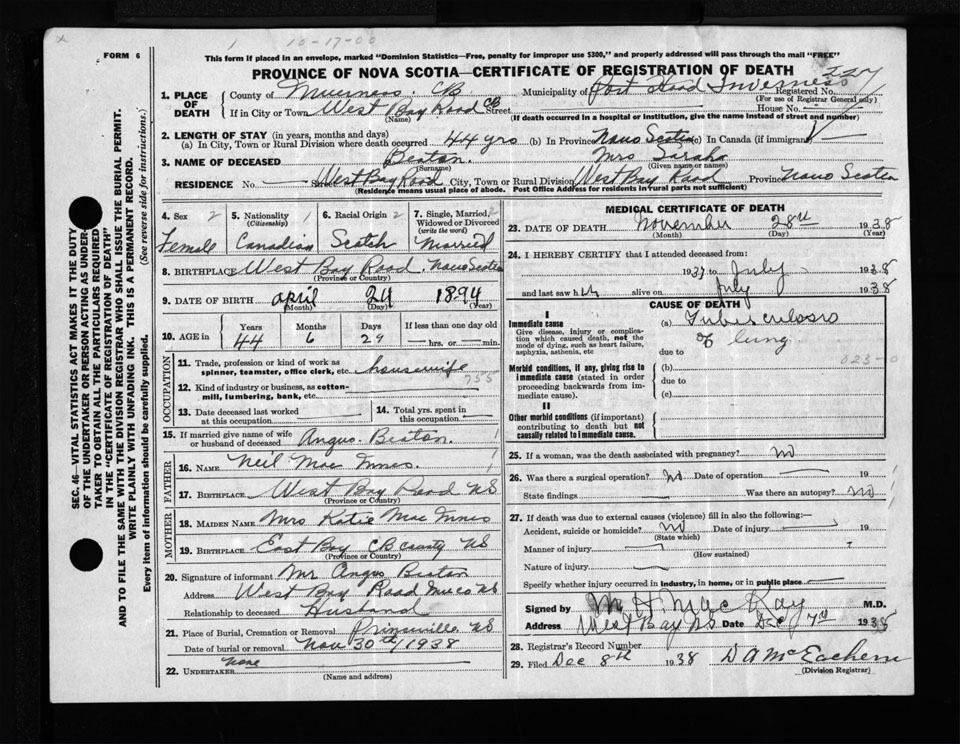 1 10-17-00
FORM 6
This form if placed in an envelope, marked "Dominion Statistics—Free, penalty for improper use $300," and properly addressed will pass through the mail "FREE"
PROVINCE OF NOVA SCOTIA—CERTIFICATE OF REGISTRATION OF DEATH
227
1. PLACE OF DEATH
County of Inverness. CB Municipality of Port Hood Inverness Registered No.
(For use of Registrar General only)
If in City or Town West Bay Road CB Street House No.
(Name) (If death occurred in a hospital or institution, give the name instead of street and number)
2. LENGTH OF STAY (in years, months and days)
(a) In City, Town or Rural Division where death occurred 44 yrs (b) In Province Nova Scotia (c) In Canada (if immigrant)
3. NAME OF DECEASED Beaton. Mrs
(Surname) (Given name or names)
RESIDENCE No. Street West Bay Road City, Town or Rural Division West Bay Road Province Nova Scotia
(Residence means usual place of abode. Post Office Address for residents in rural parts not sufficient)
4. Sex 2 Female
5. Nationality 1 Canadian
6. Racial Origin 2 Scotch
7. Single, Married, Widowed or Divorced (write the word) 2 Married
8. BIRTHPLACE West Bay Road, Nova Scotia
(Province or Country)
9. DATE OF BIRTH April 24 1894
(Month) (Day) (Year)
10. AGE in Years Months Days If less than one day old
44 6 29 hrs. or min.
OCCUPATION
11. Trade, profession or kind of work as spinner, teamster, office clerk, etc. housewife
755
12. Kind of industry or business, as cotten-mill, lumbering, bank, etc.
13. Date deceased last worked at this occupation
14. Total yrs. spent in this occupation
15. If married give name of wife or husband of deceased Angus. Beaton. 1
FATHER
16. NAME Neil Mac Innes. 1
17. BIRTHPLACE West Bay Road NS
(Province or Country)
MOTHER
18. MAIDEN NAME Mrs Katie Mac Innes
19. BIRTHPLACE East Bay CB county NS
(Province or Country)
20. Signature of informant Mr Angus Beaton
Address West Bay Road NS
Relationship to deceased Husband
21. Place of Burial, Cremation or Removal NS
Date of burial or removal Nov 30th/1938
22. UNDERTAKER None
(Name and address)
MEDICAL CERTIFICATE OF DEATH
23. DATE OF DEATH November 28th 1938
(Month) (Day) (Year)
24. I HEREBY CERTIFY that I attended deceased from:
1937 to July 1938
and last saw her alive on July 1938
CAUSE OF DEATH
I
Immediate cause
Give disease, injury or complication which caused death, not the mode of dying, such as heart failure, asphyxia, asthenia, etc
(a) Tuberculosis
of lung
due to
023-0
Morbid conditions, if any, giving rise to immediate cause (stated in order proceeding backwards from immediate cause).
(b)
due to
(c)
II
Other morbid conditions (if important) contributing to death but not causally related to immediate cause.
25. If a woman, was the death associated with pregnancy? no
26. Was there a surgical operation? No Date of operation 1
State findings Was there an autopsy? no 1
27. If death was due to external causes (violence) fill in also the following:—
Accident, suicide or homicide? no Date of injury
(State which)
Manner of injury
(How sustained)
Nature of injury
Specify whether injury occurred in industry, in home, or in public place
Signed by M. H. MacKay M.D.
Address West Bay NS Date Dec 7th 1938
28. Registrar's Record Number
29. Filed Dec 8th 1938 D A McEachern
(Division Registrar)
SEC. 46—VITAL STATISTICS ACT MAKES IT THE DUTY
OF THE UNDERTAKER OR PERSON ACTING AS UNDER-
TAKER TO OBTAIN ALL THE PARTICULARS REQUIRED
IN THE "CERTIFICATE OF REGISTRATION OF DEATH"
AND TO FILE THE SAME WITH THE DIVISION REGISTRAR WHO SHALL ISSUE THE BURIAL PERMIT.
WRITE PLAINLY WITH UNFADING INK. THIS IS A PERMANENT RECORD.
Every item of information should be carefully supplied. (See reverse side for instructions.)